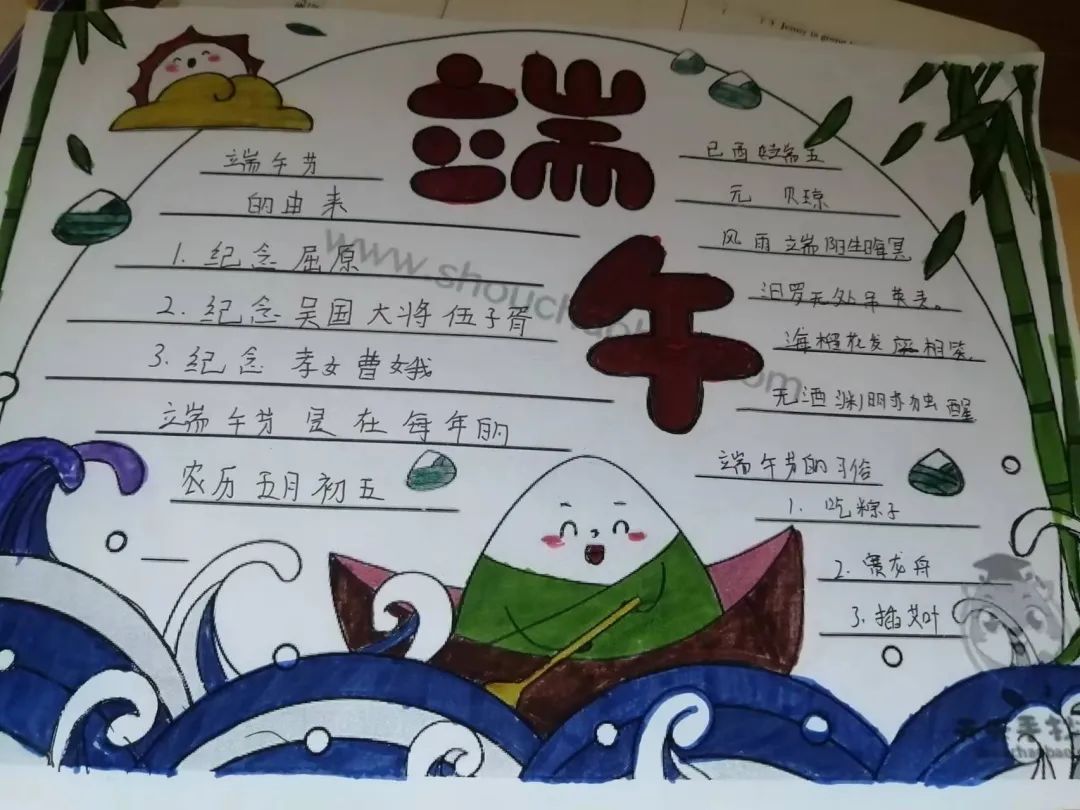 端午
端午节
的由来
1. 纪念屈原
2. 纪念吴国大将伍子胥
3. 纪念孝女曹娥
端午节是在每年的
农历五月初五
己酉端五
元 贝琼
风雨端阳生晦冥
汨罗无处吊英灵。
海榴花发应相笑
无酒渊明亦独醒
端午节的习俗
1. 吃粽子
2. 赛龙舟
3. 插艾叶